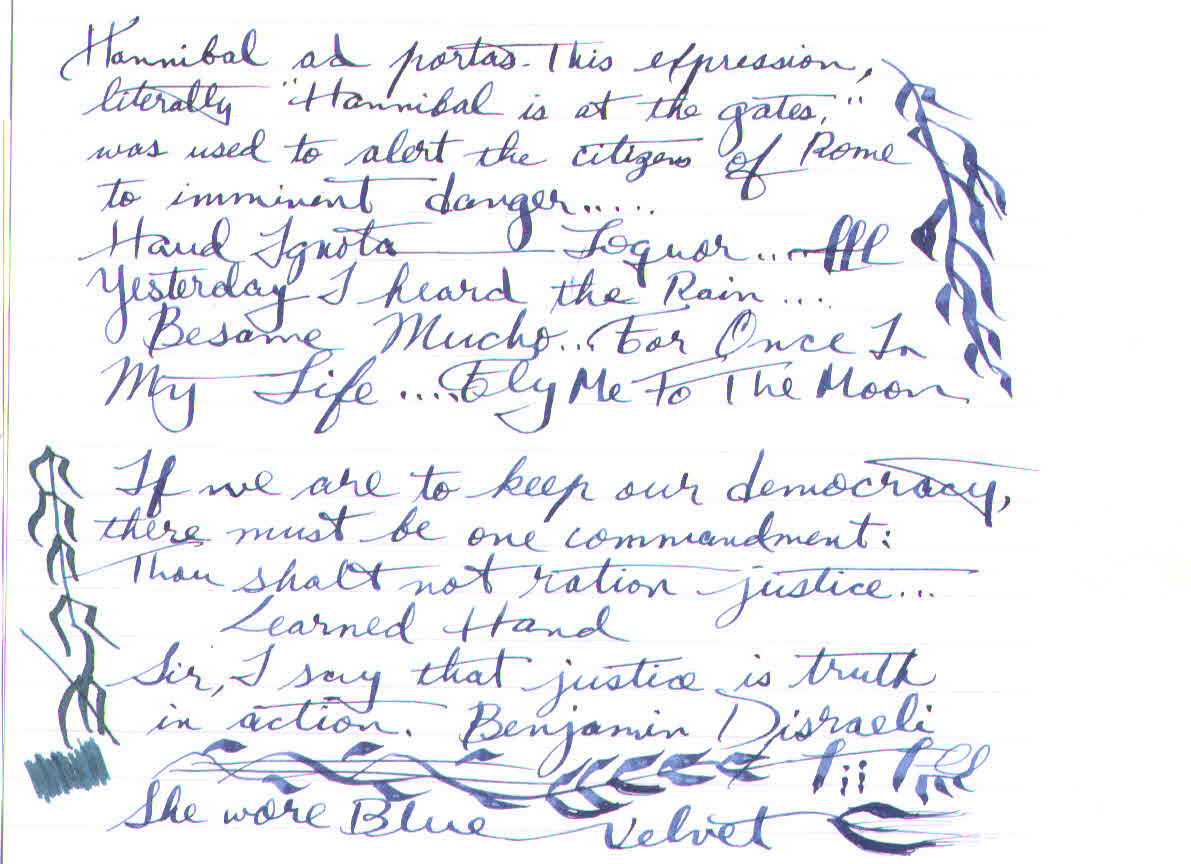 Hannibal ad portas. This expression,
literally "Hannibal is at the gates,"
was used to alert the citizens of Rome
to imminent danger.....
Haud Ignota Loquor...
Yesterday I heard the Rain ....
Besame Mucho... For Once In
My Life ....Fly Me To The Moon
If we are to keep our democracy,
there must be one commandment:
Thou shalt not ration justice...
Learned Hand
Sir, I say that justice is truth
in action. Benjamin Disraeli
She wore Blue Velvet